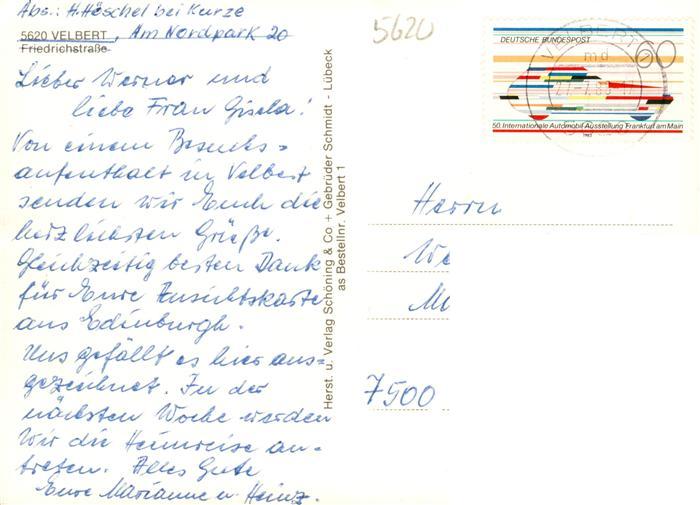 Abs.: H. Höschel bei Kurze
5620 VELBERT, Am Nordpark 20
Friedrichstraße
Lieber Werner und
liebe Frau Gisela!
Von einem Besuchs-
aufenthalt in Velbert
senden wir Euch die
herzlichsten Grüße.
Gleichzeitig besten Dank
für Eure Ansichtskarte
aus Edinburgh.
Uns gefällt es hier aus-
gezeichnet. In der
nächsten Woche werden
wir die Heimreise an-
treten. Alles Gute
Eure Marianne u. Heinz.
Herst. u. Verlag Schöning & Co + Gebrüder Schmidt - Lübeck
as Bestellnr. Velbert 1
5620
DEUTSCHE BUNDESPOST
60
50. Internationale Automobil-Ausstellung Frankfurt am Main
1983
VELBERT
md
Herrn
7500